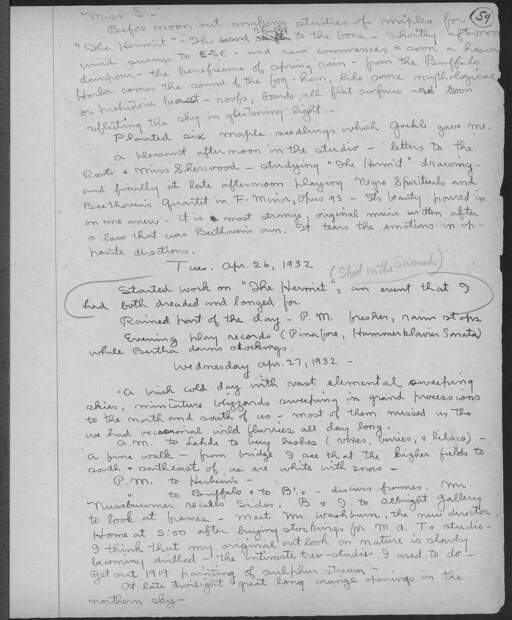 Miss S -
59
Before noon out making studies of maples for
"The Hermit" - The wind to the bone - Shortly afternoon
wind swings to E-SE - and rain commences & soon a heavy
downpour - the beneficence of spring rain - from the Buffalo
Harbor comes the sound of the fog-horn, like some mythological
or prehistoric beast - roofs, boards all flat surfaces soon
reflecting the sky in glistening light -
Planted six maple seedlings which gave me.
A pleasant afternoon in the studio - letters to the
Roots & Miss Sherwood - studying "The Hermit" drawing -
and finally at late afternoon playing Negro Spirituals and
Beethoven's Quartet in F. Minor, Opus 95 - Its beauty poured in
on me anew - it is a most strange, original music written after
a law that was Beethoven's own. It tears the emotions in op-
posite directions.
Tues. Apr. 26, 1932
(Shed in the Swamp)
Started work on "The Hermit", an event that I
had both dreaded and longed for.
Rained part of the day - P.M. fresher, rain stops
Evening play records (Pinafore, Hammerklavier Sonata)
while Bertha darns stockings.
Wednesday Apr. 27, 1932 -
A brisk cold day with vast elemental sweeping
skies, miniature blizzards sweeping in grand processions
to the north and south of us - most of them missed us tho
we had occasional wild flurries all day long.
A.M. to Lehde to buy bushes ( berries, & lilacs) -
a fine walk - from bridge I see that the higher fields to
south & southeast of us are white with snow -
P.M. to
" to Buffalo & to B's. - discuss frames. Mr.
recalls Sides. B & I to Albright Gallery
to look at frames - meet Mr. Washburn, the new director.
Home at 5:00 after buying stockings for M.A. To studio -
I think that my original outlook on nature is slowly
becoming drilled - the intimate tree-studies I used to do -
Get out 1919 painting of sulphur stream -
At late twilight great long orange openings in the
northern sky -